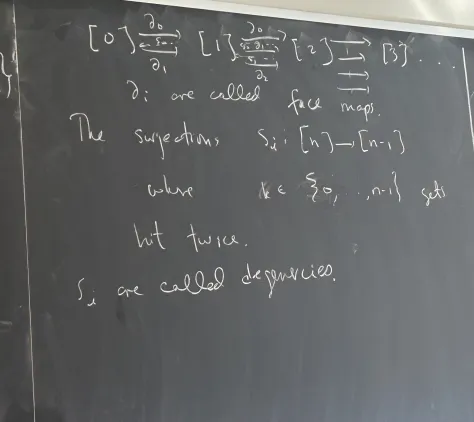 [0] ∂₀ ← s₀ ∂₁ [1] ∂₀ s₀ ∂₁ s₁ ∂₂ [2] → → → → [3] . . .
∂i are called face maps.
The surjections Si : [n] → [n-1]
where i ∈ {0, . . , n-1} gets
hit twice.
Si are called degenercies.